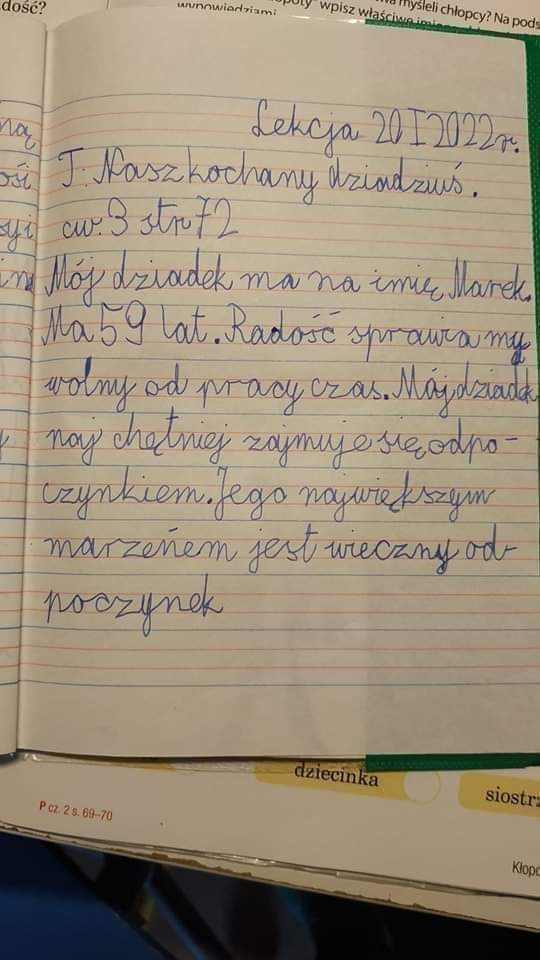 dość?
myśleli chłopcy? Na pods
wpisz właściwe
wypowiedziami
Lekcja 20 I 2022r.
T: Nasz kochany dziadziuś.
ćw. 3 str 72
Mój dziadek ma na imię Marek.
Ma 59 lat. Radość sprawia my
wolny od pracy czas. Mój dziadek
naj chętniej zajmuje się odpo-
czynkiem. Jego największym
marzeńem jest wieczny od-
poczynek
dziecinka
siostrz
P cz. 2 s. 69–70
Kłopo